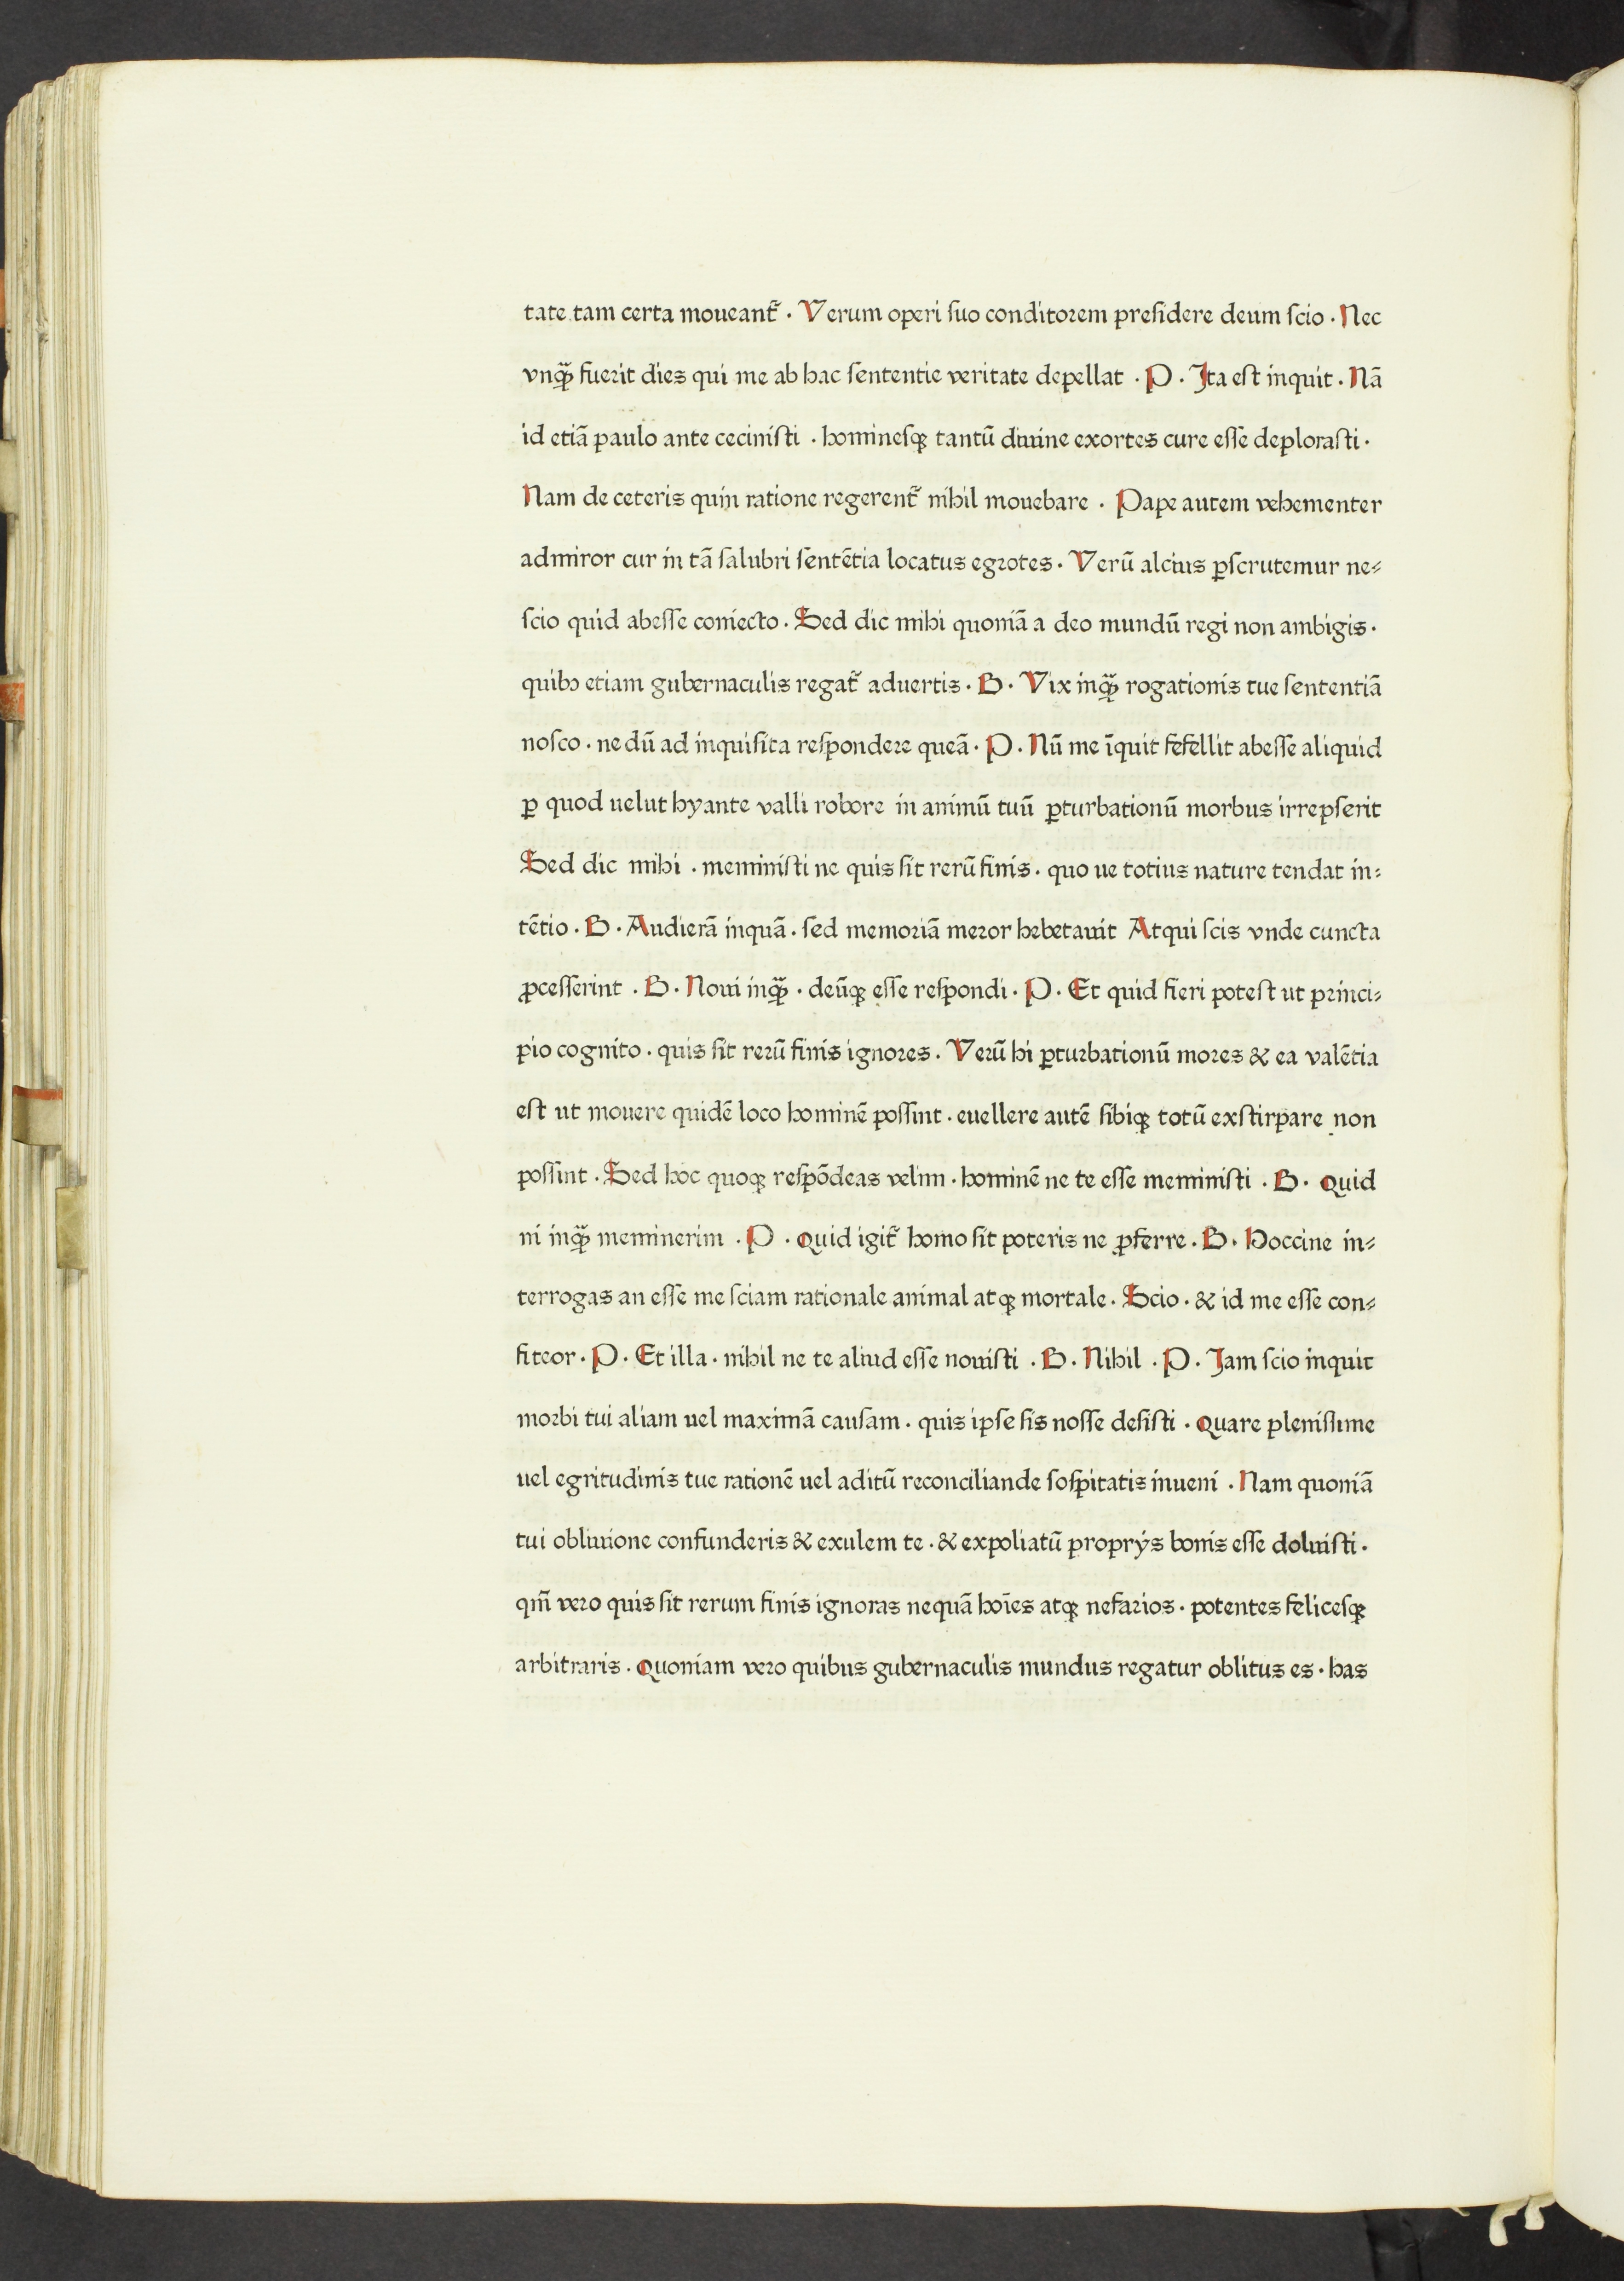 tate tam certa moueant᷑ . Verum operi ſuo conditorem preſidere deum ſcio . Nec
vnqᷓꝫ fuerit dies qui me ab hac ſententie veritate depellat . P . Ita eſt inquit . Nā
id etiā paulo ante ceciniſti . hominesqꝫ tantū diuine exortes cure eſſe deploraſti .
Nam de ceteris quin ratione regerent᷑ nihil mouebare . Pape autem vehementer
admiror cur in tā ſalubri ſentētia locatus egrotes . Verū alcius ꝑſcrutemur ne⸗
ſcio quid abeſſe coniecto . Sed dic mihi quoniā a deo mundū regi non ambigis .
quibꝰ etiam gubernaculis regat᷑ aduertis . B . Vix inqᷓꝫ rogationis tue ſententiā
noſco . ne dū ad inquiſita reſpondere queā . P . Nū me īquit fefellit abeſſe aliquid
ꝑ quod uelut hyante valli robore in animū tuū ꝑturbationū morbus irrepſerit
Sed dic mihi . meminiſti ne quis ſit rerū finis . quo ue totius nature tendat in⸗
tētio . B . Audierā inquā . ſed memoriā meror hebetauit Atqui ſcis vnde cuncta
ꝓceſſerint . B . Noui inqᷓꝫ . deūqꝫ eſſe reſpondi . P . Et quid fieri poteſt ut princi⸗
pio cognito . quis ſit rerū finis ignores . Verū hi ꝑturbationū mores & ea valētia
eſt ut mouere quidē loco hominē poſſint . euellere autē ſibiqꝫ totū exſtirpare non
poſſint . Sed hoc quoqꝫ reſpōdeas velim . hominē ne te eſſe meminiſti . B . Quid
ni inqᷓꝫ meminerim . P . Quid igit᷑ homo ſit poteris ne ꝓferre . B . Hoccine in⸗
terrogas an eſſe me ſciam rationale animal atqꝫ mortale . Scio . & id me eſſe con⸗
fiteor . P . Et illa . nihil ne te aliud eſſe nouiſti . B . Nihil . P . Iam ſcio inquit
morbi tui aliam uel maximā cauſam . quis ipſe ſis noſſe deſiſti . Quare pleniſſime
uel egritudinis tue rationē uel aditū reconciliande ſoſpitatis inueni . Nam quoniā
tui obliuione confunderis & exulem te . & expoliatū proprijs bonis eſſe doluiſti .
qm̄ vero quis ſit rerum finis ignoras nequā hoīes atqꝫ nefarios . potentes felicesqꝫ
arbitraris . Quoniam vero quibus gubernaculis mundus regatur oblitus es . has